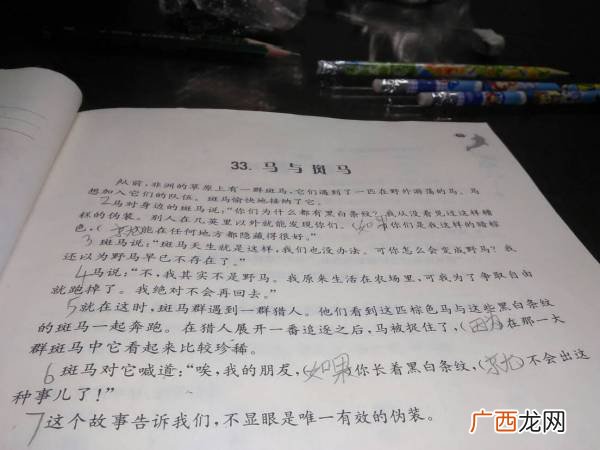 33. 马与斑马
从前,非洲的草原上有一群斑马,它们遇到了一匹在野外游荡的马。马
想加入它们的队伍。斑马愉快地接纳了它。
2 马对身边的斑马说:“你们为什么都有黑白条纹?我从没看见过这样糟
糕的伪装。别人在几英里以外就能发现你们。(如果)你们是我这样的暗棕
色,( )能在任何地方都隐藏得很好。”
3 斑马说:“斑马天生就是这样,我们也没办法。可你怎么会变成野马?我
还以为野马早已不存在了。”
4 马说:“不,我其实不是野马。我原来生活在农场里,可我为了争取自由
就跑掉了。我绝对不会再回去。”
5 就在这时,斑马群遇到一群猎人。他们看到这匹棕色马与这些黑白条纹
的斑马一起奔跑。在猎人展开一番追逐之后,马被捉住了,(因为)在那一大
群斑马中它看起来比较珍稀。
6 斑马对它喊道:“唉,我的朋友,(如果)你长着黑白条纹,( )不会出这
种事儿了!”
7 这个故事告诉我们,不显眼是唯一有效的伪装。
广西龙网